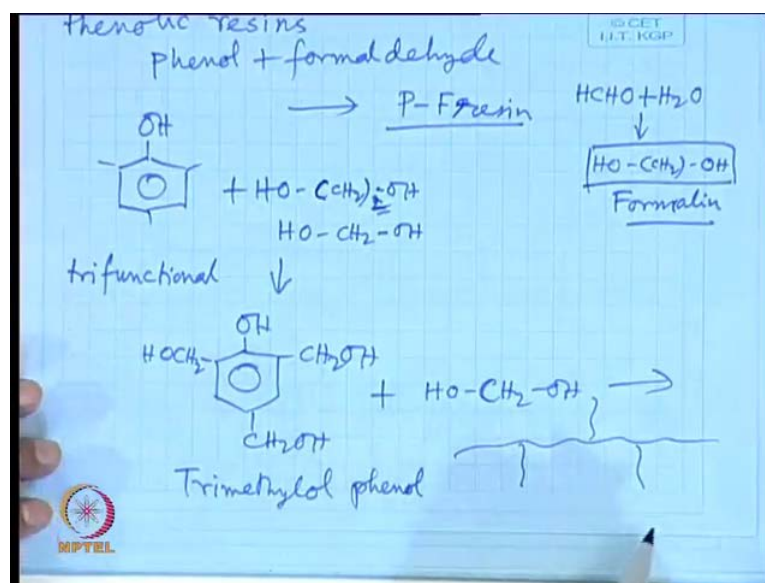 phenolic resins
© CET
I.I.T. KGP
phenol + formaldehyde
→ P-F resin
HCHO + H2O
↓
HO-(CH2)-OH
Formalin
OH
+ HO-(CH2)-OH
HO-CH2-OH
trifunctional ↓
OH
HOCH2- -CH2OH + HO-CH2-OH →
CH2OH
Trimethylol phenol
NPTEL